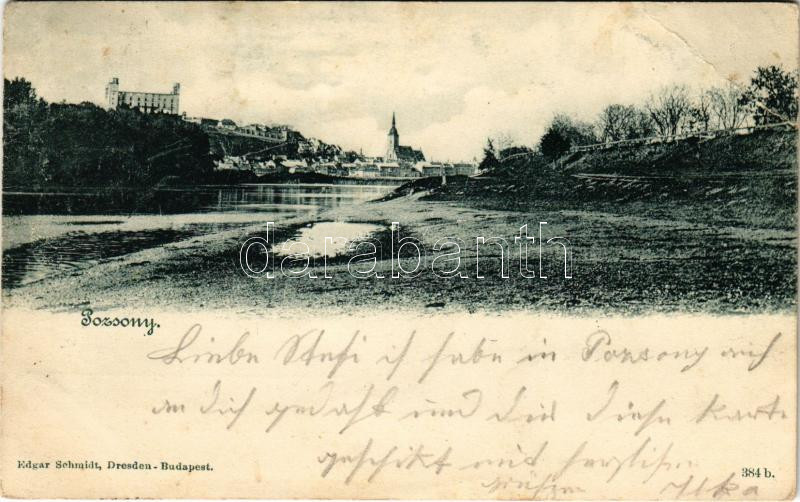 darabanth
Pozsony.
Liebe Stefi ich habe in Pozsony auch
an dich gedacht und dir diese Karte
Edgar Schmidt, Dresden-Budapest.
geschikt mit herzlichen
384 b.
Grüßen Ilka